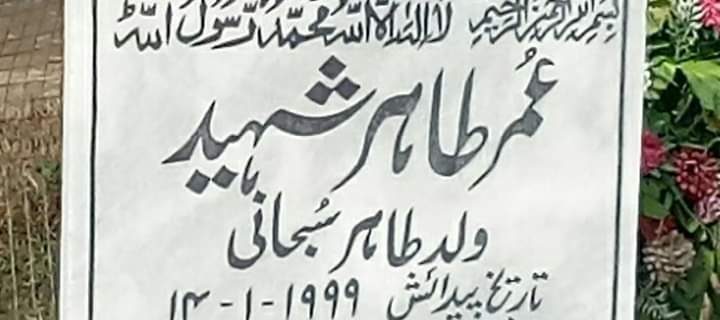 بسم اللہ الرحمن الرحیم لا الہ الا اللہ محمد رسول اللہ
عُمر طاہر شہید
ولد طاہر سُبحانی
تاریخ پیدائش ۱۹۹۹-۱-۱۴